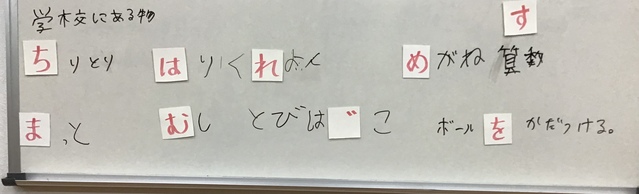 学校にある物 す
ちりとり はり くれよん めがね 算数
まっと むし とびは゛こ ボールをかだつける。